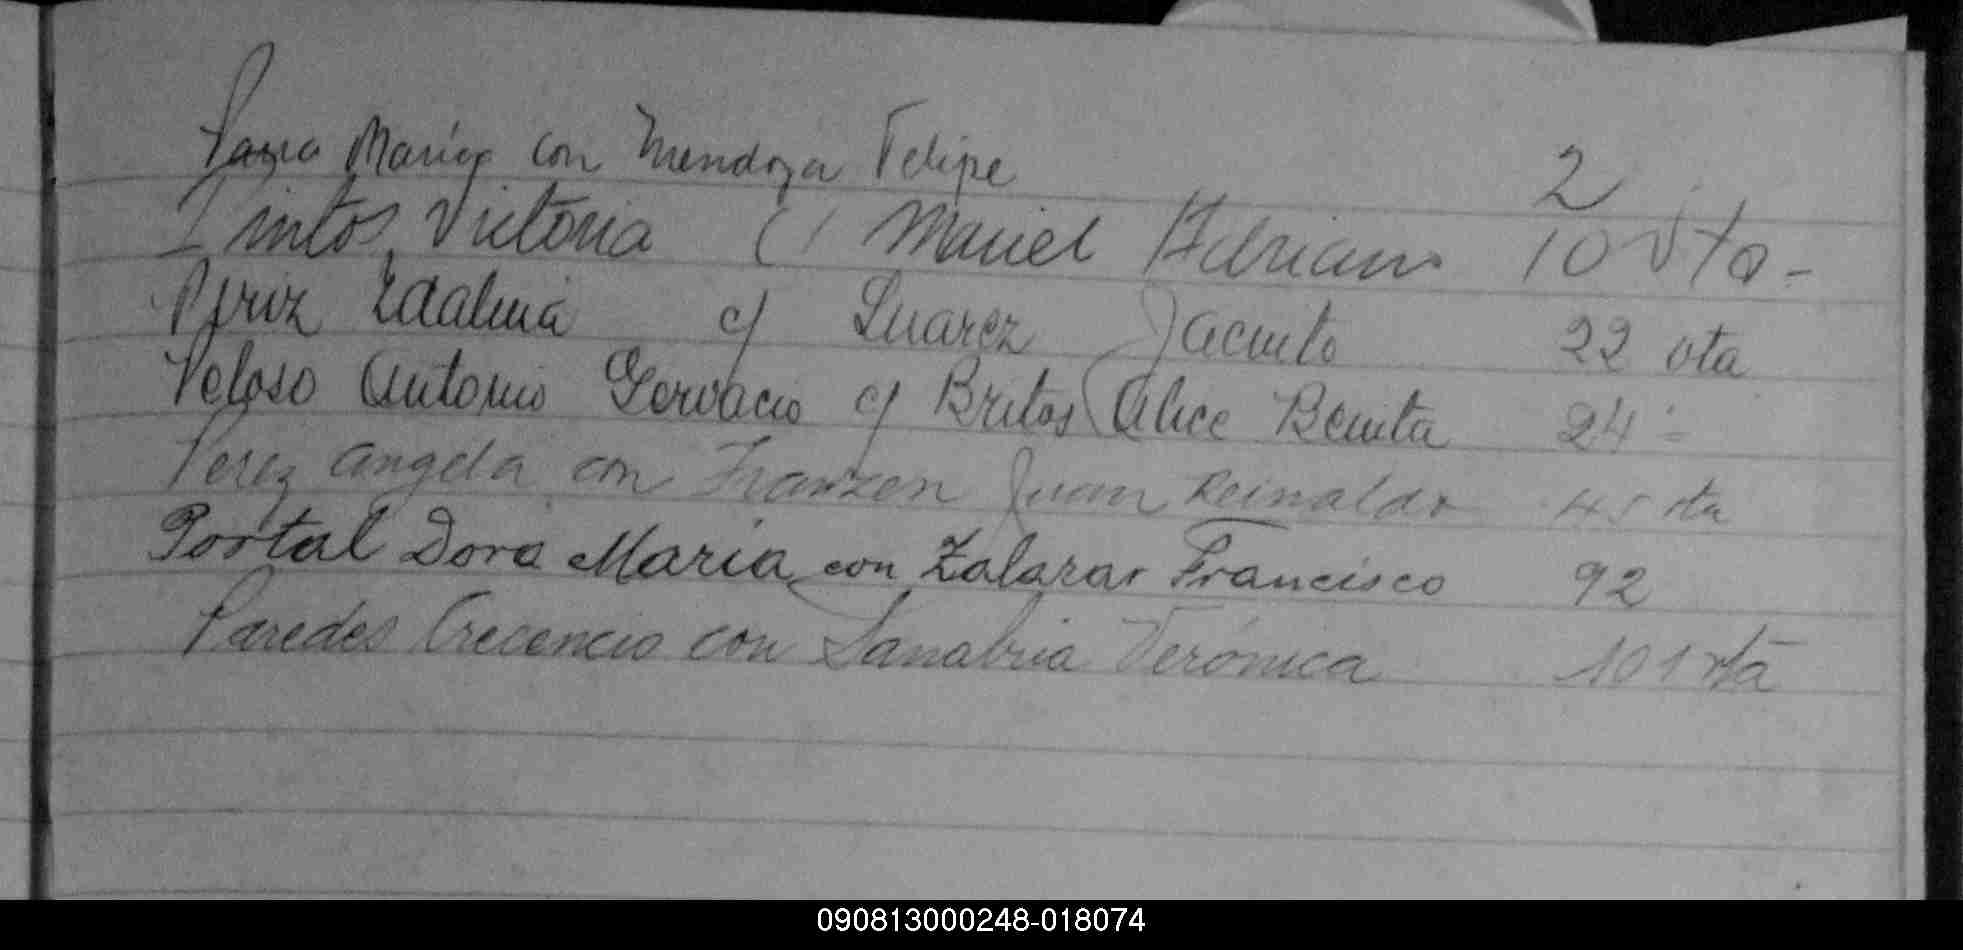 María con Mendoza Felipe 2
Victoria c/ Maciel Adriano 10 vta -
Idalina c/ Suarez Jacinto 22 vta
Veloso Antonio Gervacio c/ Britos Alice Benita 24 -
Perez Angela con Franzen Juan Reinaldo 45 vta
Portal Dora Maria con Zalazar Francisco 92
Paredes Crecencio con Sanabria Verónica 101 vta
090813000248-018074